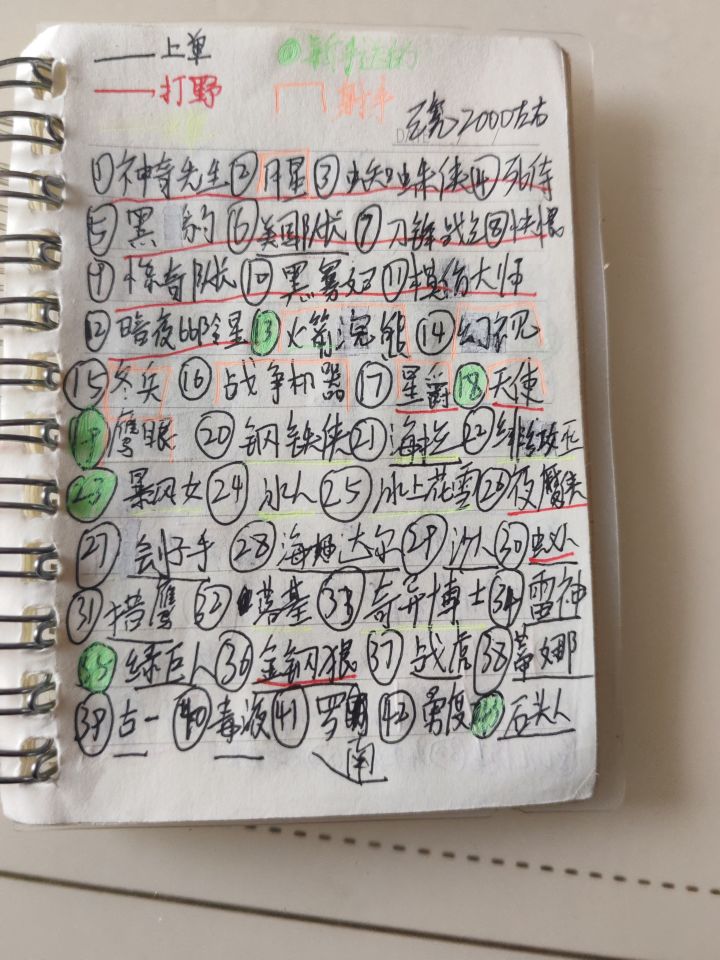 上单 新手适合
打野 射手
2000左右
①神奇先生②月星③蜘蛛侠④死侍
⑤黑豹⑥美国队长⑦刀锋战士⑧快银
⑨惊奇队长⑩黑寡妇⑪模仿大师
⑫暗夜比邻星⑬火箭浣熊⑭幻视
⑮冬兵⑯战争机器⑰星爵⑱天使
⑲鹰眼⑳钢铁侠㉑海拉㉒绯红女巫
㉓暴风女㉔冰人㉕冰上花雪㉖夜魔侠
㉗刽子手㉘海姆达尔㉙沙人㉚蚁人
㉛猎鹰㉜洛基㉝奇异博士㉞雷神
㉟绿巨人㊱金钢狼㊲战虎㊳蒂娜
㊴古一㊵毒液㊶罗南㊷勇度 石头人